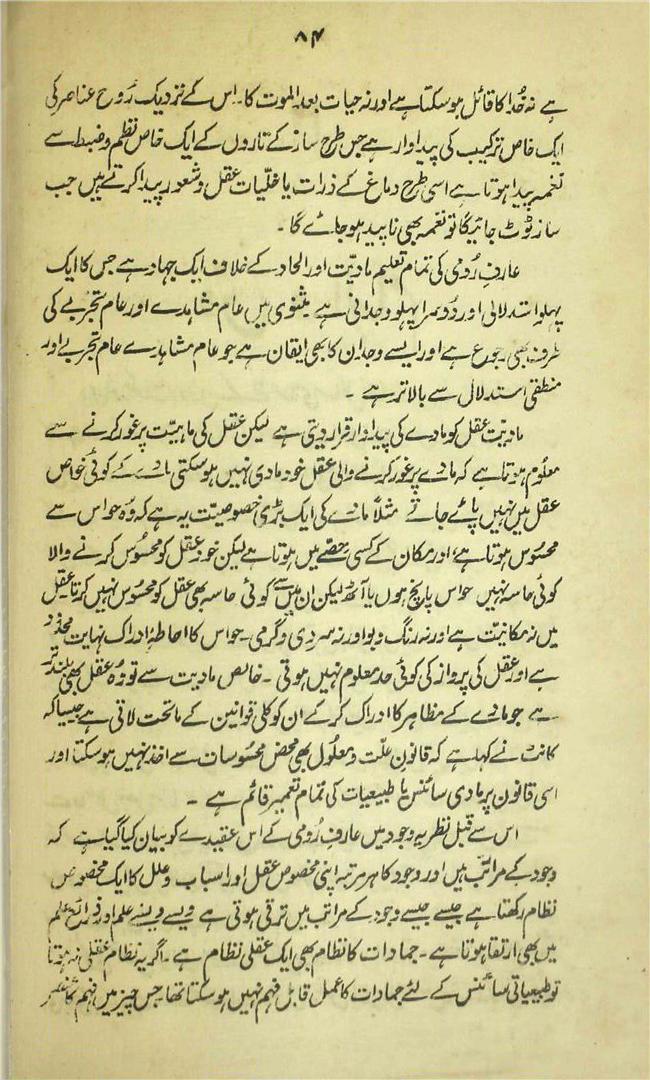 ۸۴
ہے نہ خُدا کا قائل ہو سکتا ہے اور نہ حیات بعد الموت کا۔ اس کے نزدیک رُوح عناصر کی
ایک خاص ترکیب کی پیداوار ہے جس طرح ساز کے تاروں کے ایک خاص نظم و ضبط سے
نغمہ پیدا ہوتا ہے اسی طرح دماغ کے ذرات یا خلیات عقل و شعور پیدا کرتے ہیں جب
ساز ٹوٹ جائیگا تو نغمہ بھی ناپید ہو جائے گا ۔
عارفِ رُومی کی تمام تعلیم مادیّت اور الحاد کے خلاف ایک جہاد ہے جس کا ایک
پہلو استدلالی اور دُوسرا پہلو وجدانی ہے مثنوی میں عام مشاہدے اور عام تجربے کی
طرف بھی رجوع ہے اور ایسے وجدان کا بھی ایقان ہے جو عام مشاہدے عام تجربے اور
منطقی استدلال سے بالاتر ہے ۔
مادیّت عقل کو مادے کی پیداوار قرار دیتی ہے لیکن عقل کی ماہیّت پر غور کرنے سے
معلُوم ہوتا ہے کہ مادے پر غور کرنے والی عقل خود مادی نہیں ہو سکتی مادے کے کوئی خواص
عقل میں نہیں پائے جاتے مثلاً مادے کی ایک بڑی خصوصیّت یہ ہے کہ وُہ حواس سے
محسُوس ہوتا ہے، اور مکان کے کسی حصّے میں ہوتا ہے لیکن خود عقل کو محسُوس کرنے والا
کوئی حاسہ نہیں حواس پانچ ہوں یا آٹھ لیکن ان میں سے کوئی حاسہ بھی عقل کو محسُوس نہیں کرتا عقل
میں نہ مکانیّت ہے اور نہ رنگ و بو اور نہ سردی و گرمی ۔ حواس کا احاطۂ ادراک نہایت محدُود
ہے اور عقل کی پرواز کی کوئی حد معلوم نہیں ہوتی ۔ خالص مادیت سے تو وُہ عقل بھی بلند تر
ہے جو مادے کے مظاہر کا ادراک کر کے ان کو کلی قوانین کے ماتحت لاتی ہے جیسا کہ
کانٹ نے کہا ہے کہ قانون علّت و معلُول بھی محض محسُوسات سے اخذ نہیں ہو سکتا اور
اسی قانون پر مادی سائنس یا طبیعیات کی تمام تعمیر قائم ہے ۔
اس سے قبل نظریہ وجود میں عارف رُومی کے اس عقیدے کو بیان کیا گیا ہے کہ
وجود کے مراتب ہیں اور وجود کا ہر مرتبہ اپنی مخصوص عقل اور اسباب و علل کا ایک مخصوص
نظام رکھتا ہے جیسے جیسے وجود کے مراتب میں ترقی ہوتی ہے ویسے ویسے علم اور ذرائع علم
میں بھی ارتقا ہوتا ہے ۔ جمادات کا نظام بھی ایک عقلی نظام ہے ۔ اگر یہ نظام عقلی نہ ہوتا
تو طبیعیاتی سائنس کے لئے جمادات کا عمل قابل فہم نہیں ہو سکتا تھا جس چیز میں فہم کا عنصر